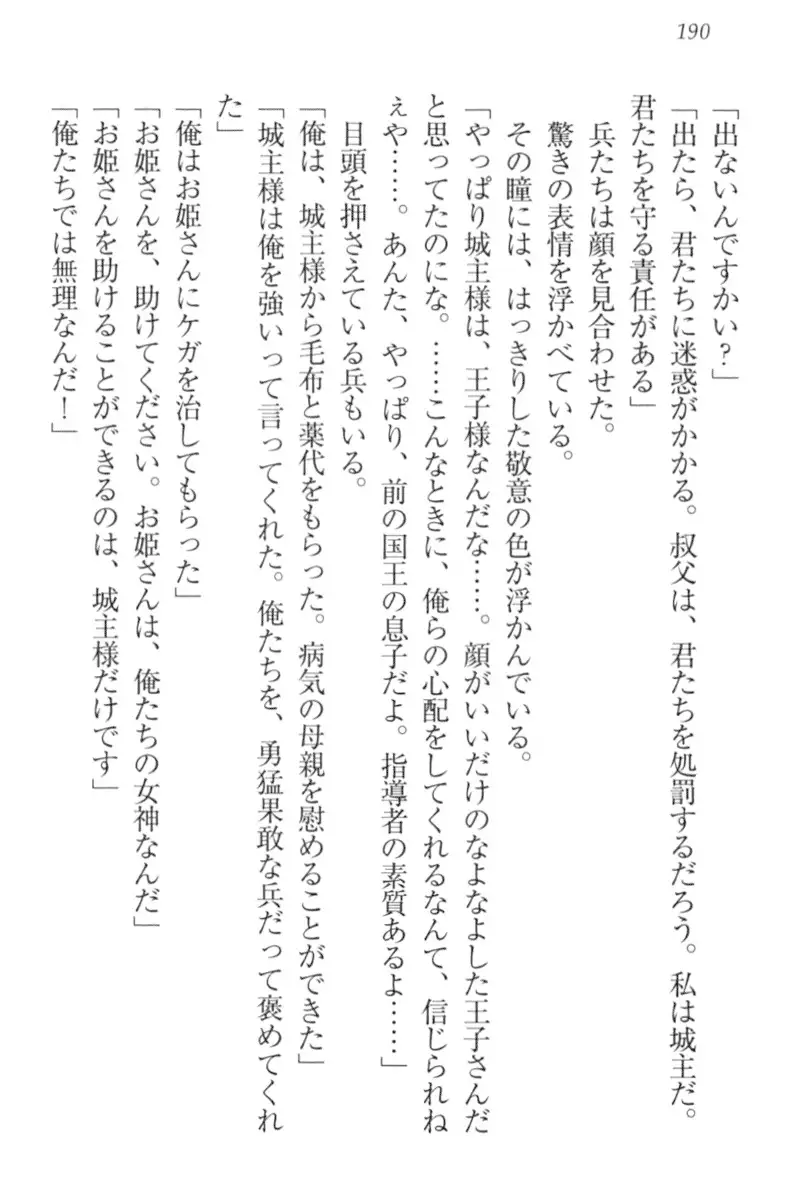 190
「出ないんですかい？」
「出たら、君たちに迷惑がかかる。叔父は、君たちを処罰するだろう。私は城主だ。
君たちを守る責任がある」
兵たちは顔を見合わせた。
驚きの表情を浮かべている。
その瞳には、はっきりした敬意の色が浮かんでいる。
「やっぱり城主様は、王子様なんだな……。顔がいいだけのなよなよした王子さんだ
と思ってたのにな。……こんなときに、俺らの心配をしてくれるなんて、信じられね
ぇや……。あんた、やっぱり、前の国王の息子だよ。指導者の素質あるよ……」
目頭を押さえている兵もいる。
「俺は、城主様から毛布と薬代をもらった。病気の母親を慰めることができた」
「城主様は俺を強いって言ってくれた。俺たちを、勇猛果敢な兵だって褒めてくれ
た」
「俺はお姫さんにケガを治してもらった」
「お姫さんを、助けてください。お姫さんは、俺たちの女神なんだ」
「お姫さんを助けることができるのは、城主様だけです」
「俺たちでは無理なんだ！」